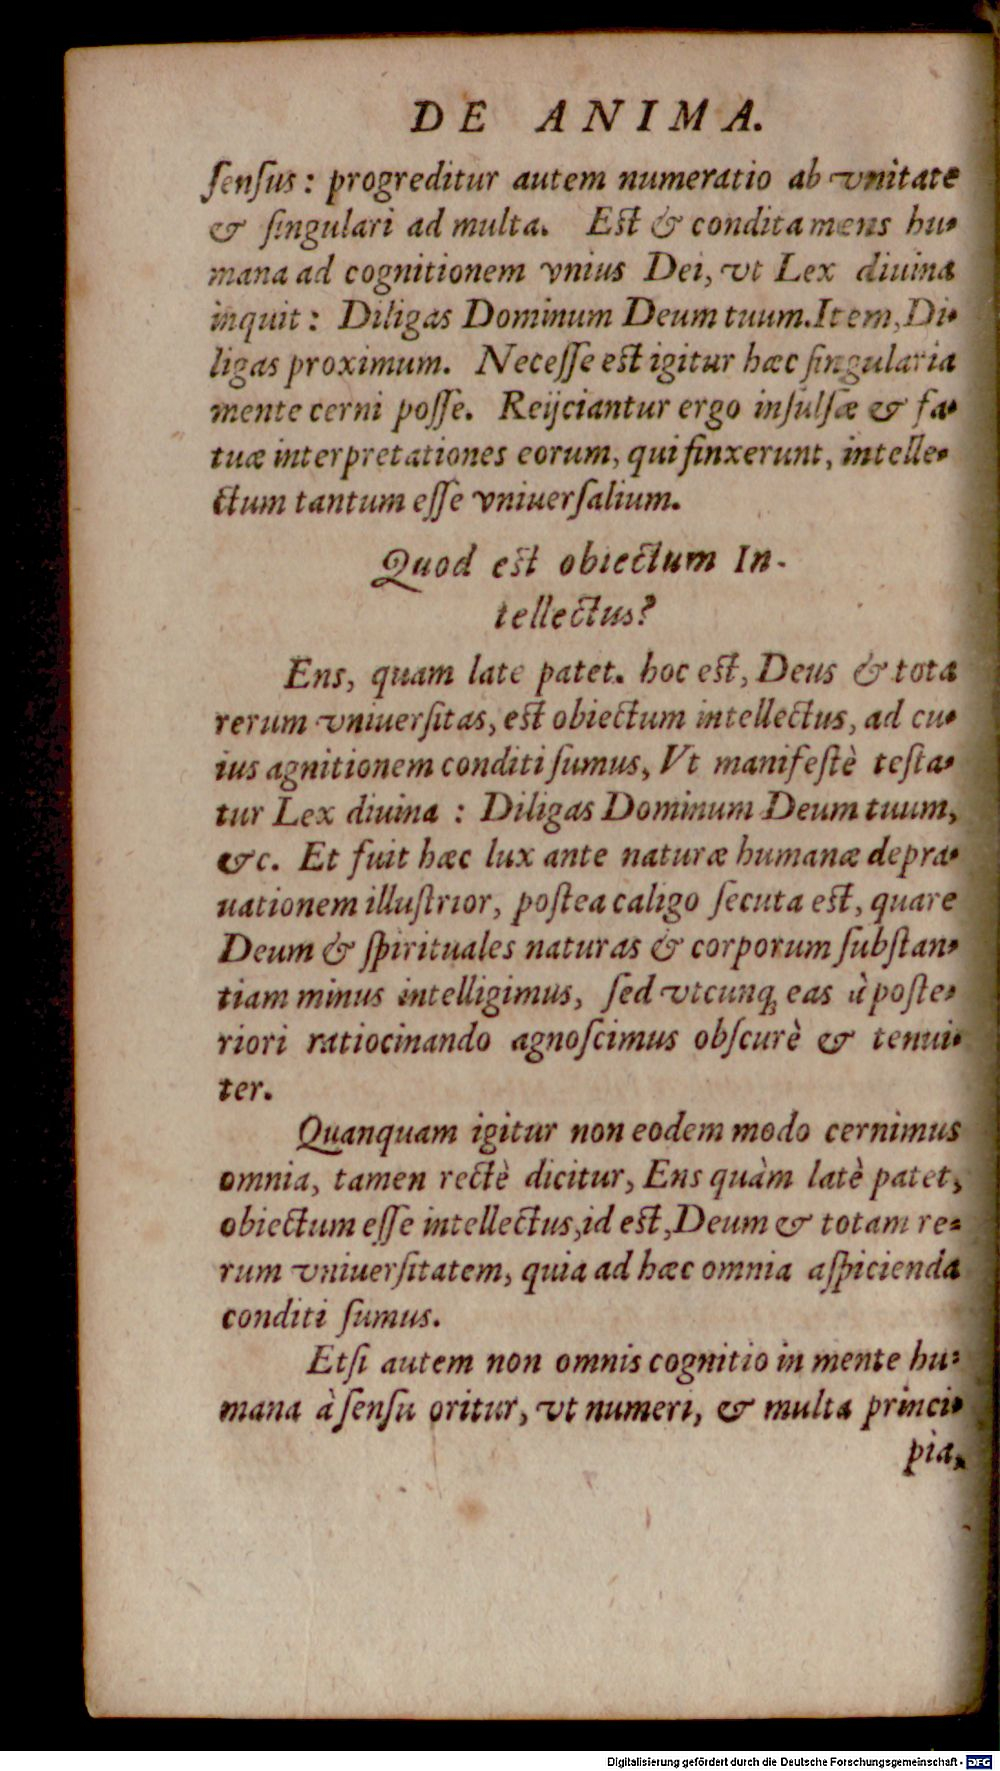 DE ANIMA.
ſenſus: progreditur autem numeratio ab vnitate
& ſingulari ad multa. Est & condita mens hu-
mana ad cognitionem vnius Dei, vt Lex diuina
inquit: Diligas Dominum Deum tuum. Item, Di-
ligas proximum. Neceſſe est igitur hæc ſingularia
mente cerni poſſe. Reijciantur ergo inſulſæ & fa-
tuæ interpretationes eorum, qui finxerunt, intelle-
ctum tantum eſſe vniuerſalium.
Quod est obiectum In-
tellectus?
Ens, quam late patet. hoc est, Deus & tota
rerum vniuerſitas, est obiectum intellectus, ad cu-
ius agnitionem conditi ſumus, Vt manifeſtè teſta-
tur Lex diuina : Diligas Dominum Deum tuum,
&c. Et fuit hæc lux ante naturæ humanæ depra-
uationem illuſtrior, poſtea caligo ſecuta est, quare
Deum & ſpirituales naturas & corporum ſubſtan-
tiam minus intelligimus, ſed vtcunq; eas à poſte-
riori ratiocinando agnoſcimus obſcurè & tenui-
ter.
Quanquam igitur non eodem modo cernimus
omnia, tamen rectè dicitur, Ens quàm latè patet,
obiectum eſſe intellectus, id est, Deum & totam re-
rum vniuerſitatem, quia ad hæc omnia aſpicienda
conditi ſumus.
Etſi autem non omnis cognitio in mente hu-
mana à ſenſu oritur, vt numeri, & multa princi-
pia,
Digitalisierung gefördert durch die Deutsche Forschungsgemeinschaft - DFG